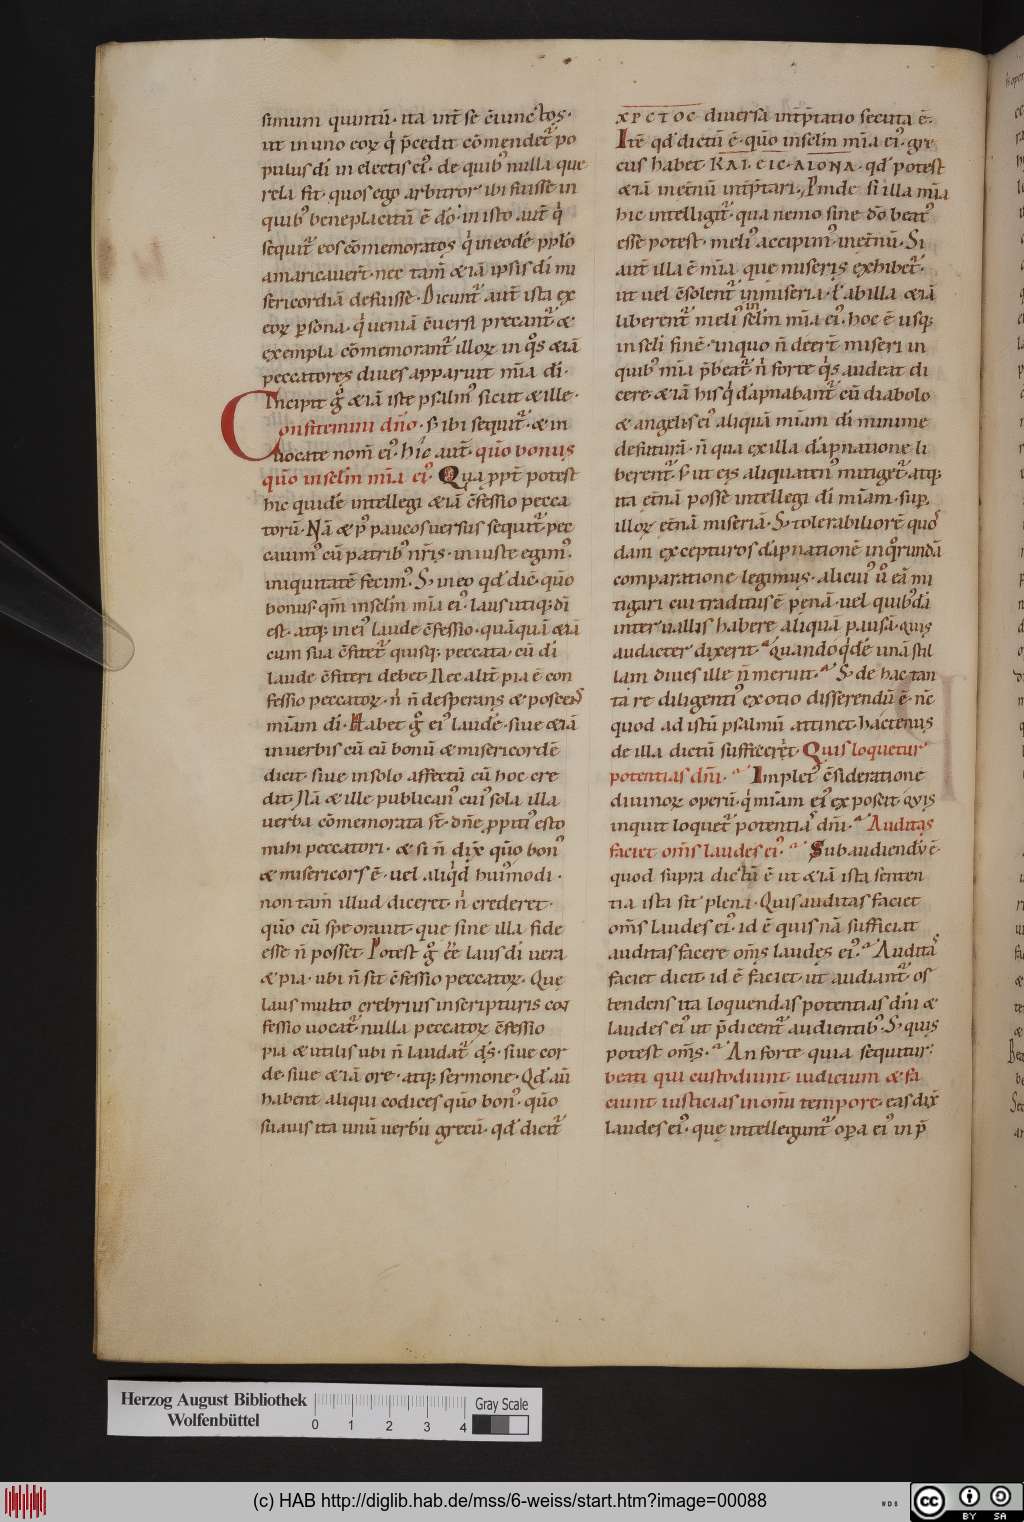 simum quintū· ita int̄ se c̄iunctos·
ut in uno eoꝝ q̇ p̄cedit cōmendet᷑ po
pulus dī in electis eiꝰ· de quibꝰ nulla que
rela fit· quos ego arbitror ibi fuisse in
quibꝰ beneplacitū ē dō· in isto aut̄ q̇
sequit᷑ eos cōmemoratos q̇ in eodē pplo
amaricauer̄t· nec tam̄ &iā ipsis dī mi
sericordiā defuisse· Dicunt᷑ aut̄ ista ex
eoꝝ ꝑsona· q̇ ueniā c̄uersi precant᷑ &
exempla cōmemorant᷑ illoꝝ in qͦs &iā
peccatores diues apparuit mīa dī·
Incipit gͦ &iā iste psalmꝰ sicut & ille·
Confitemini dn̄o· sꝫ ibi sequit᷑· & in
uocate nom̄ eiꝰ· hic aut̄· qūo bonus
qūo in sc̄lm mīa eiꝰ· Quapp̄t potest
hic quidē intellegi &iā c̄fessio pecca
torū· Nā & pꝰ paucos uersus sequit᷑ pec
cauimꝰ cū patribꝰ nr̄is· iniuste egimꝰ·
iniquitatē fecimꝰ· Sꝫ in eo qd̄ dic̄· qūo
bonus· qm̄ in sc̄lm mīa eiꝰ· laus utiqꝫ dī
est· atqꝫ in eiꝰ laude c̄fessio· quāquā &iā
cum sua c̄fitet᷑ quisqꝫ peccata cū dī
laude c̄fiteri debet Nec alit̄ pia ē con
fessio peccatoꝝ· n̄ n̄ desperans & poscens
miām dī· Habet gͦ eiꝰ laudē· siue &iā
in uerbis cū eū bonū & misericordē
dicit· siue in solo affectū cū hoc cre
dit· Nā & ille publicanꝰ cuiꝰ sola illa
uerba cōmemorata st̄· dn̄e ꝓpitiꝰ esto
mihi peccatori· & si n̄ dix̄ qūo bonꝰ
& misericors ē· uel aliqd̄ huiꝰmodi·
non tam̄ illud diceret· n̄ crederet·
qūo cū spe orauit· que sine illa fide
esse n̄ posset Potest gͦ eē laus dī uera
& pia· ubi n̄ sit c̄fessio peccatoꝝ· Que
laus multo crebrius in scripturis con
fessio uocat᷑· nulla peccatoꝝ c̄fessio
pia & utilis ubi n̄ laudat᷑ dꝰs· siue cor
de siue &iā ore· atqꝫ sermone· Qd̄ aū
habent aliqui codices qūo bonꝰ· qūo
suauis ita unū uerbū grecū· qd̄ dicit᷑
ΧΡΣΤΟΣ diuersā int̄p̄tatio secuta ē·
Itē qd̄ dictū ē· qūo in sc̄lm mīa eiꝰ· gre
cus habet ΚΑΙ· CIC· ΑΙΟΝΑ· qd̄ potest
&iā inet̄nū int̄p̄tari· Proinde si illa mīa
hic intelligit᷑· qua nemo sine dō beatꝰ
esse potest· meliꝰ accipimꝰ inet̄nū· Si
aut̄ illa ē mīa que miseris exhibet᷑·
ut uel c̄solent᷑ in miseria· ł ab illa &iā
liberent᷑ meliꝰ in sc̄lm mīa eiꝰ· hoc ē usqꝫ
in sc̄li finē· in quo n̄ deer̄t miseri in
quibꝰ mīa p̄beat᷑· n̄ forte qͥs audeat di
cere &iā his q̇ dāpnabant᷑ cū diabolo
& angelis eiꝰ aliquā miām dī minime
defuturā· n̄ qua ex illa dāpnatione li
berent᷑· sꝫ ut eis aliquatenꝰ mitiget᷑· atqꝫ
ita et̄nā posse intellegi dī miām· suꝑ
illoꝝ et̄nā miseriā· Sꝫ tolerabiliorē quos
dam excepturos dāpnationē in qͦrundā
comparatione legimus· alicuiꝰ ū eā mi
tigari cui traditus ē penā· uel quibꝰdā
interuallis habere aliquā pausā· quis
audacter dixerit· quandoqͥdē unā stil
lam diues ille n̄ meruit· Sꝫ de hac tan
ta re diligentiꝰ ex otio disserendū ē· nc̄
quod ad istū psalmū attinet· hactenus
de illa dictū suffecerit· Quis loquetur
potentias dn̄i· Impletꝰ c̄sideratione
diuinoꝝ operū· q̇ miām eiꝰ exposcit· quis
inquit loquet᷑ potentias dn̄i· Auditas
faciet om̄s laudes eiꝰ· Subaudiendū ē·
quod supra dictū ē ut &iā ista senten
tia ista sit plena· Quis auditas faciet
om̄s laudes eiꝰ· id ē quis nā sufficiat
auditas facere om̄s laudes eiꝰ· Auditas
faciet dicit id ē faciet ut audiant᷑· os
tendens ita loquendas potentias dn̄i &
laudes eiꝰ ut p̄dicent᷑ audientibꝰ· Sꝫ quis
potest om̄s· An forte quia sequitur·
beati qui custodiunt iudicium & fa
ciunt iusticias in om̄i tempore· eas dix̄
laudes eiꝰ· que intelleguntur᷑ oꝑa eiꝰ in p̄
Herzog August Bibliothek
Wolfenbüttel
0 1 2 3 4
Gray Scale
(c) HAB http://diglib.hab.de/mss/6-weiss/start.htm?image=00088
cc BY SA